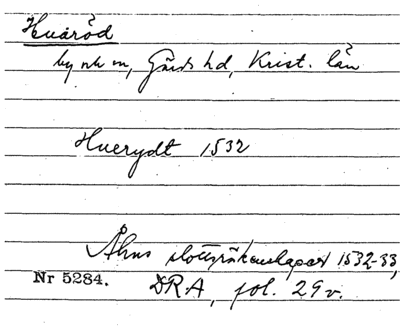 Huaröd
by o sn, Gärds hd, Krist. län
Huerydt 1532
Åhus slottsräkenskaper 1532-33,
Nr 5284. DRA, fol. 29v.